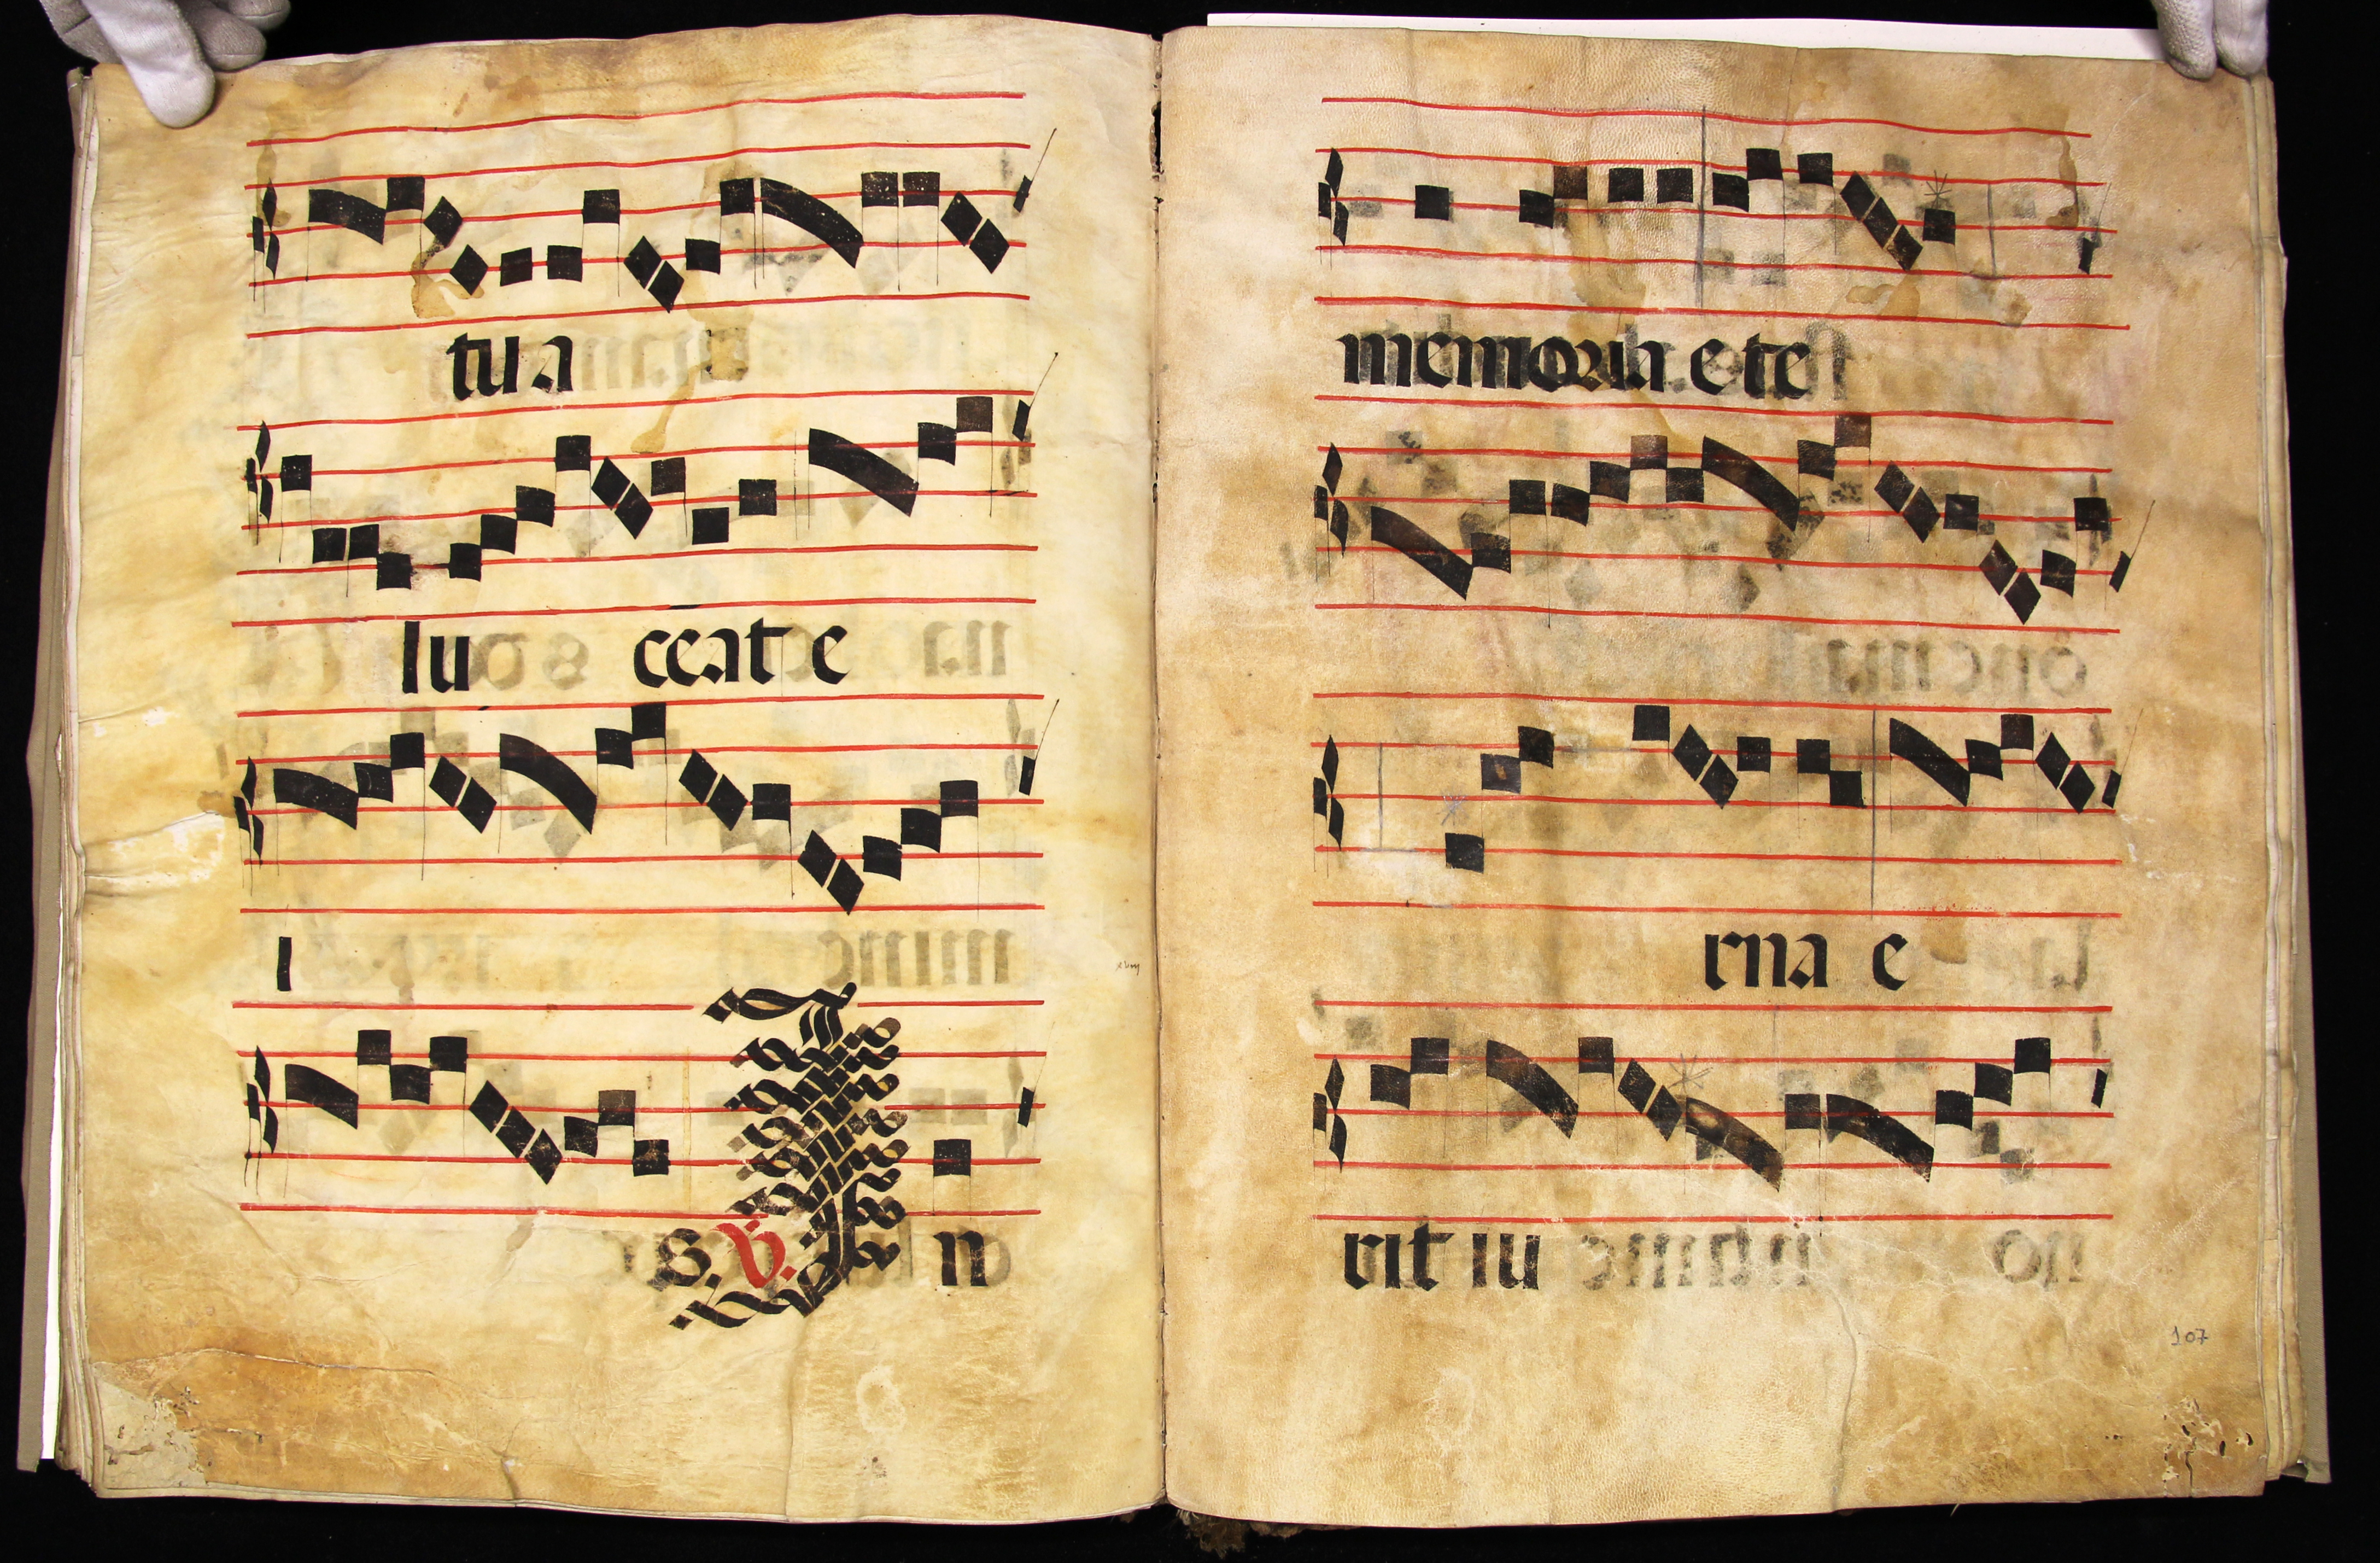 tua
lu ceat e
i
s. V. In
memoria ete
rna e
rit iu
107